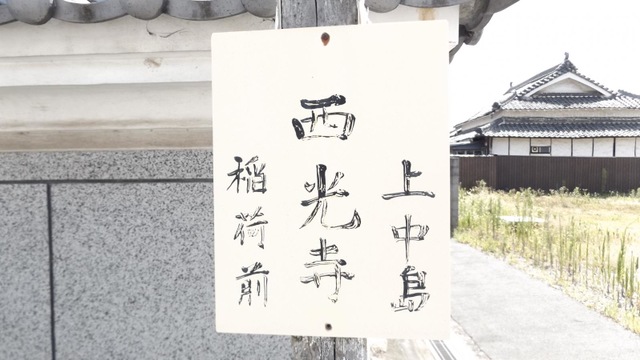 上中島
西光寺
稲荷前